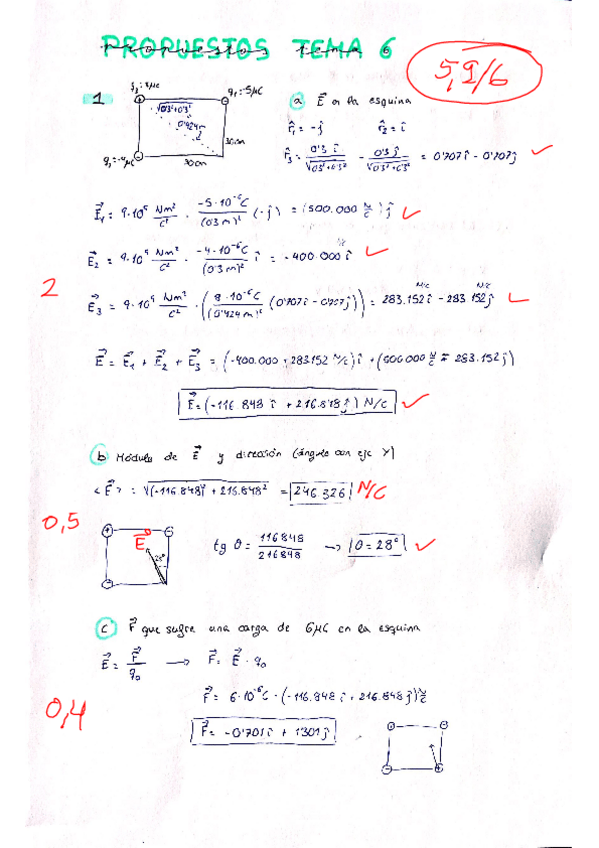 PROPUESTOS TEMA 6
5,9/6
1
q3: 8μC
q1: -5μC
√0'3²+0'3²
0'424m
30cm
q2: -4μC
30cm
a E⃗ en la esquina
r̂1 = -ĵ r̂2 = î
r̂3 = 0'3 î / √0'3²+0'3² - 0'3 ĵ / √0'3²+0'3² = 0'707î - 0'707ĵ
E⃗1 = 9·10⁹ Nm²/C² · -5·10⁻⁶C / (0'3 m)² (-ĵ) = (500.000 N/C) ĵ
E⃗2 = 9·10⁹ Nm²/C² · -4·10⁻⁶C / (0'3 m)² î = -400.000 î N/C
2
E⃗3 = 9·10⁹ Nm²/C² · (8·10⁻⁶C / (0'424m)² (0'707î - 0'707ĵ)) = 283.152 î N/C - 283 152 ĵ N/C
E⃗ = E⃗1 + E⃗2 + E⃗3 = (-400.000 + 283.152 N/C) î + (500000 N/C - 283.152 ĵ)
E⃗ = (-116 848 î + 216.848 ĵ) N/C
b Módulo de E⃗ y dirección (ángulo con eje Y)
<E⃗> = √(-116.848)² + 216.848² = 246.326 N/C
0,5
E⃗
28°
tg θ = 116848 / 216848 → θ = 28°
c F⃗ que sufre una carga de 6μC en la esquina
E⃗ = F⃗/q0 → F⃗ = E⃗ · q0
0,4
F⃗ = 6·10⁻⁶C · (-116.848 î + 216.848 ĵ) N/C
F⃗ = -0'701 î + 1'301 ĵ